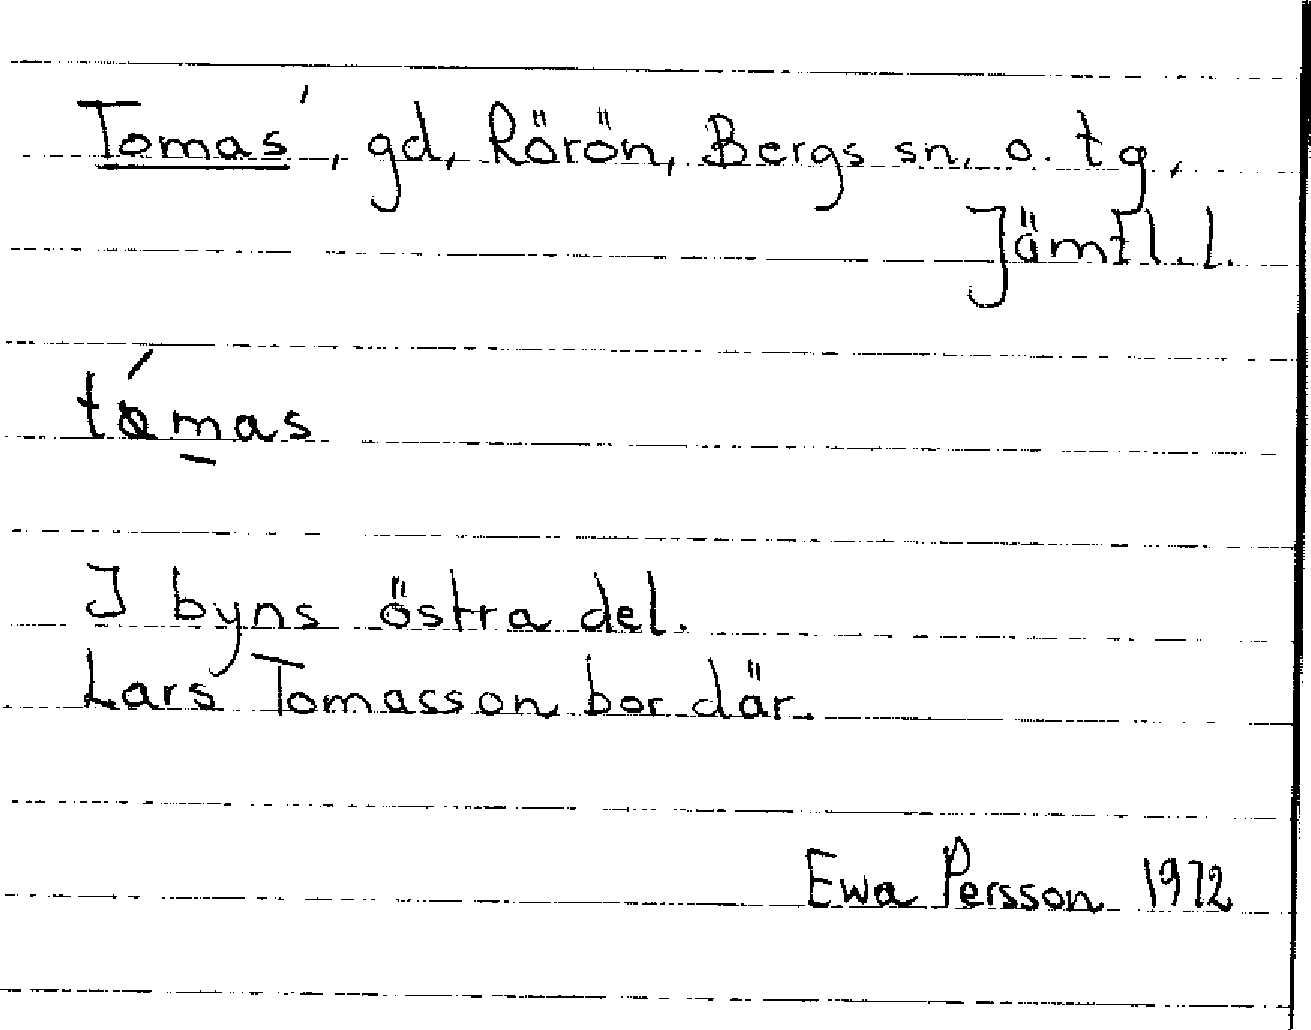 Tomas', gd, Rörön, Bergs sn. o. tg,
Jämtl. l.
tómas
I byns östra del.
Lars Tomasson bor där.
Ewa Persson 1972